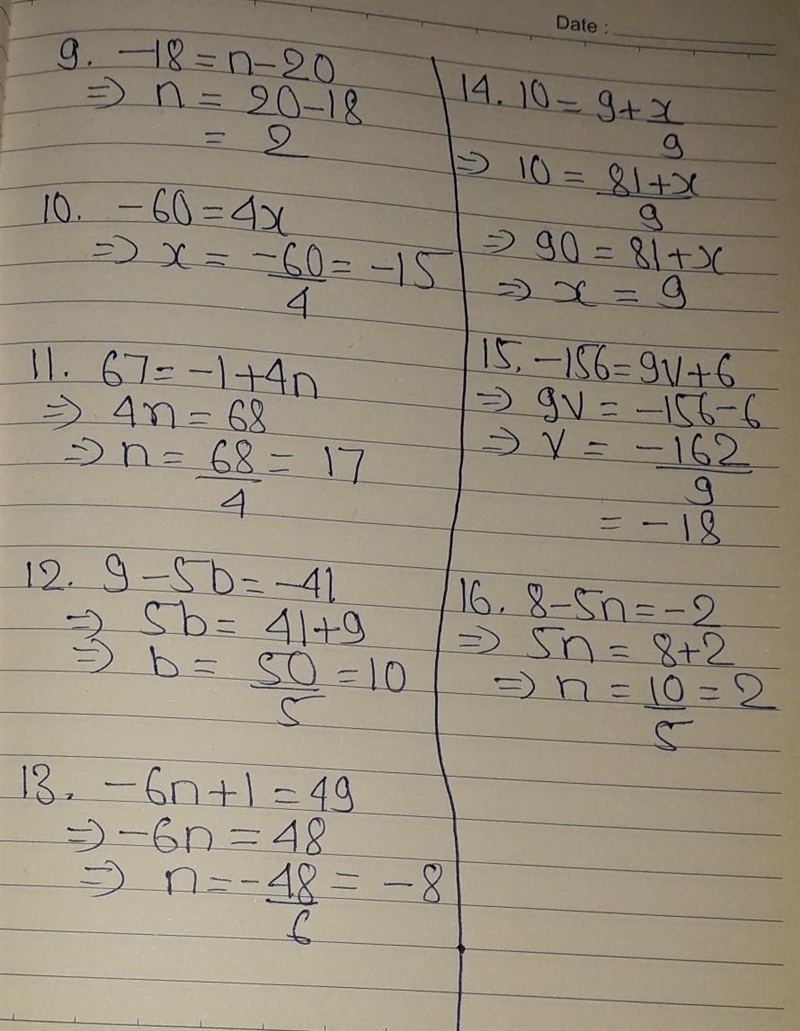 Date :
9. -18 = n-20
⇒ n = 20-18
= 2
10. -60 = 4x
⇒ x = -60/4 = -15
11. 67 = -1+4n
⇒ 4n = 68
⇒ n = 68/4 = 17
12. 9-5b = -41
⇒ 5b = 41+9
⇒ b = 50/5 = 10
13. -6n+1 = 49
⇒ -6n = 48
⇒ n = -48/6 = -8
14. 10 = 9+x/9
⇒ 10 = 81+x/9
⇒ 90 = 81+x
⇒ x = 9
15. -156 = 9v+6
⇒ 9v = -156-6
⇒ v = -162/9
= -18
16. 8-5n = -2
⇒ 5n = 8+2
⇒ n = 10/5 = 2